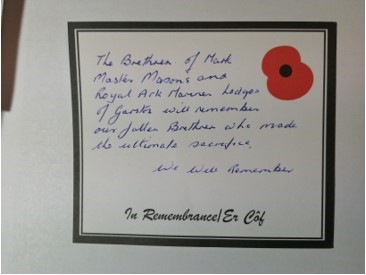 The Brethren of Mark
Master Masons and
Royal Ark Mariner Lodges
of Gwent will remember
our fallen Brethren who made
the ultimate sacrifice.
We will remember
In Remembrance/Er Côf